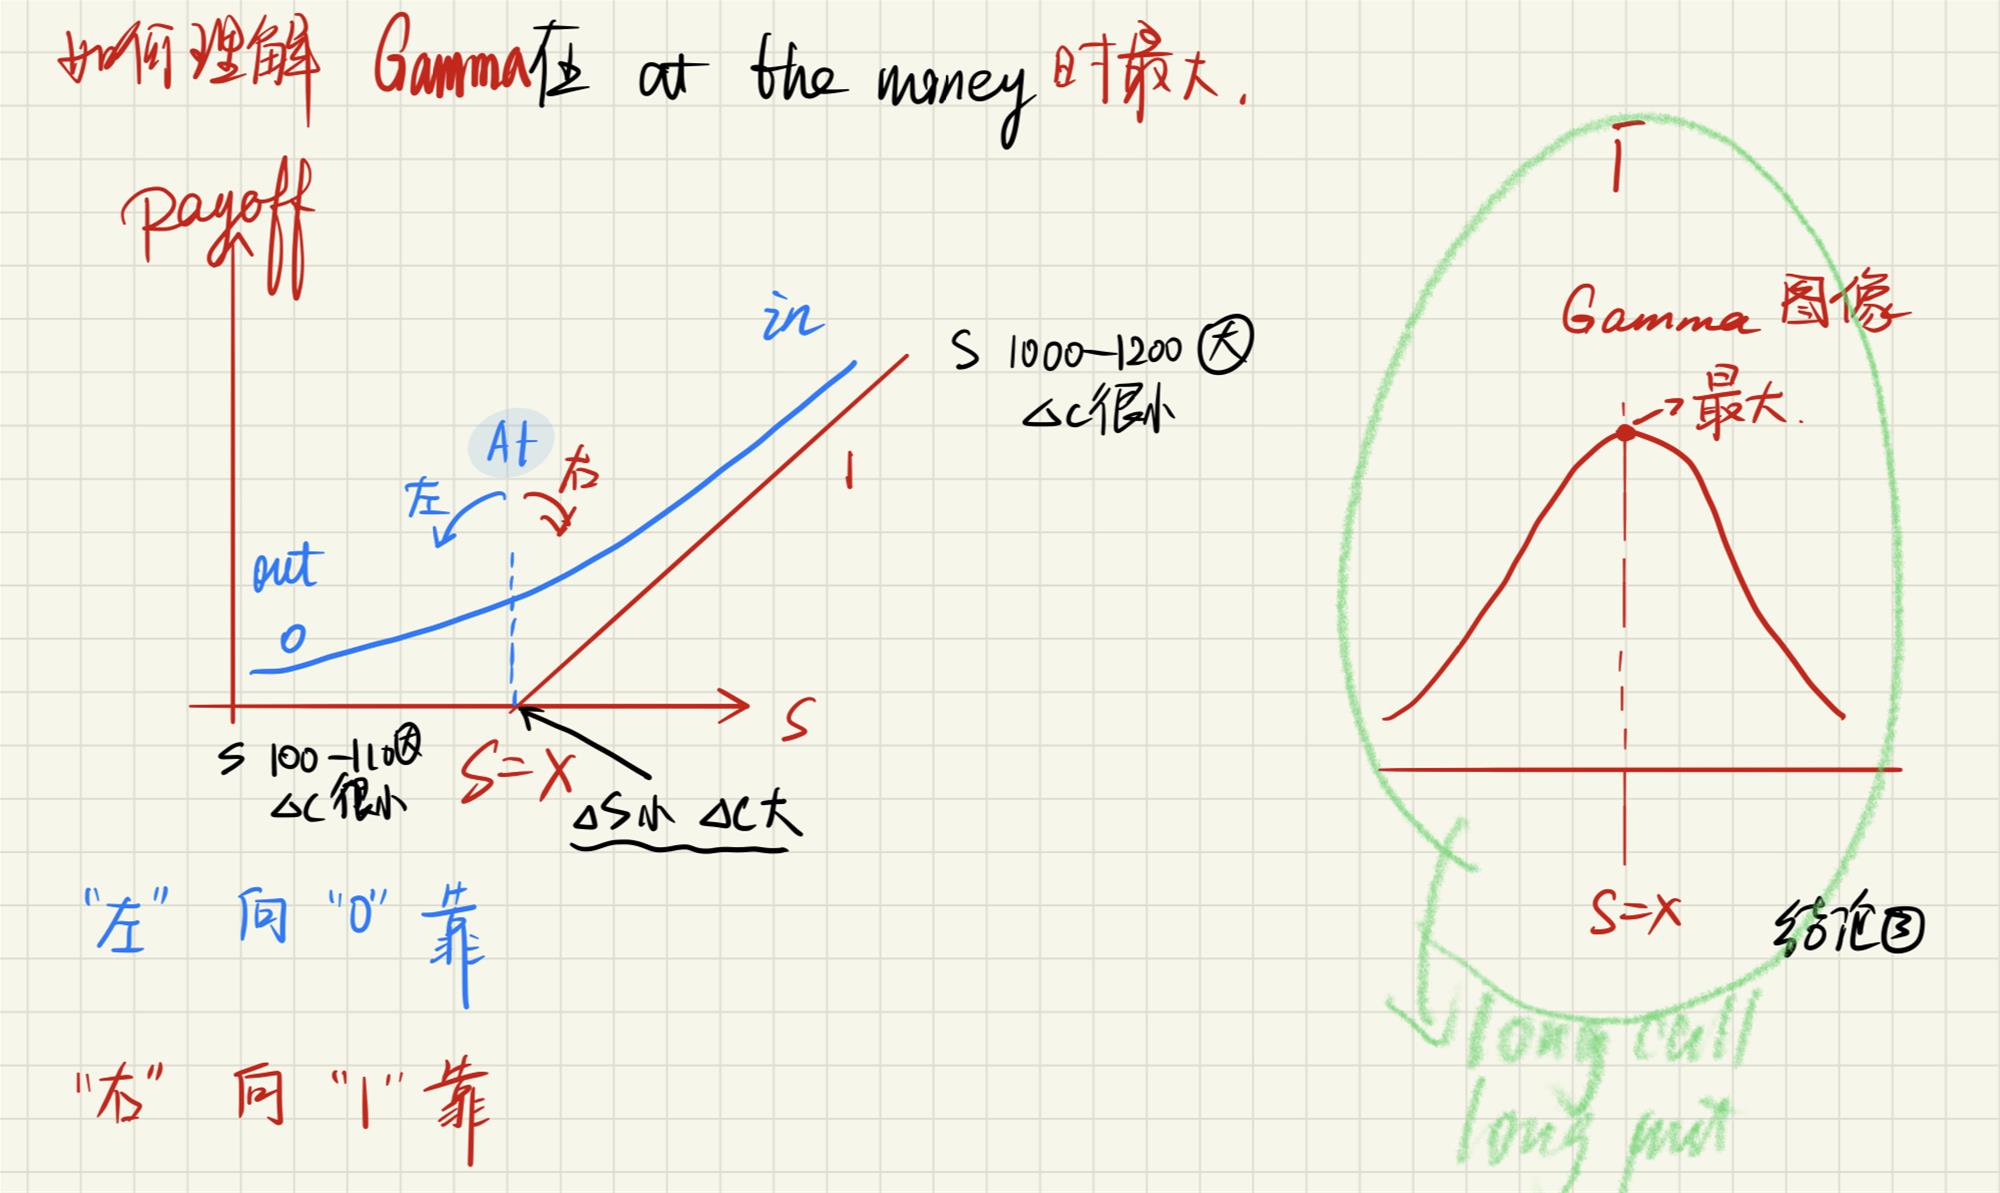 如何理解 Gamma在 at the money 时最大.
Payoff
in
S 1000—1200 大
△C很小
At
左
右
1
out
0
S
S 100—110大
△C很小
S=X
△S小 △C大
"左" 向 "0" 靠
"右" 向 "1" 靠
Γ
Gamma 图像
最大.
S=X
结论③
long call
long put